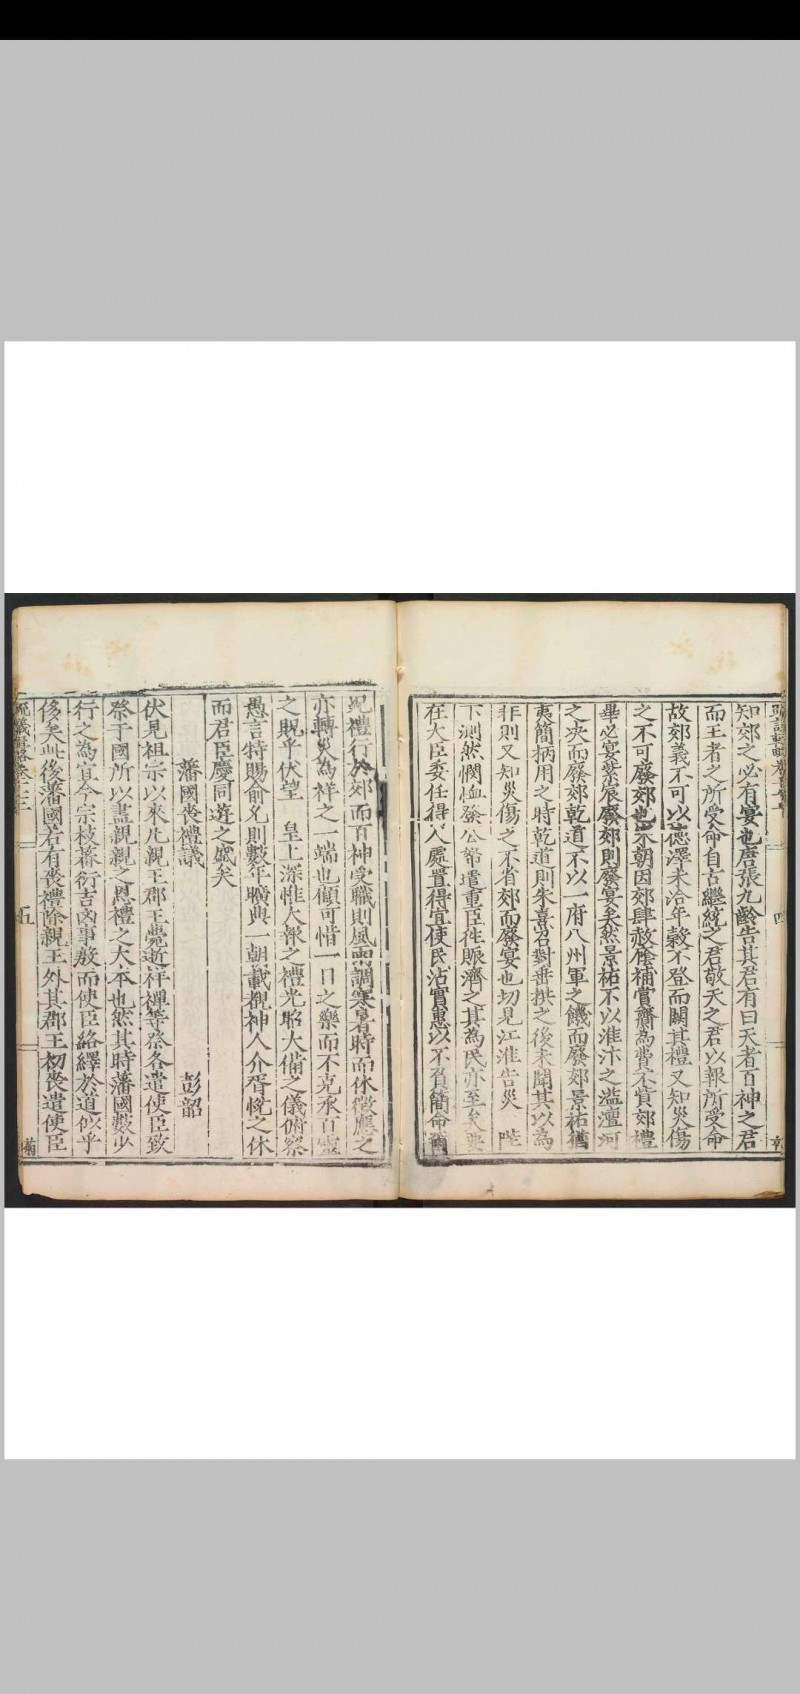 知郊之必有宴也唐張九齡告其君有曰天者百神之君
而王者之所受命自古繼統之君敬天之君以報所受命
故郊義不可以德澤未洽年穀不登而闕其禮又知災傷
之不可廢郊也宋朝因郊肆赦廕補賞賚為費不貲郊禮
畢必宴紫宸廢郊則廢宴矣然景祐不以淮汴之溢澶河
之決而廢郊乾道不以一府八州軍之饑而廢郊景祐猶
夷簡柄用之時乾道則朱熹召對垂拱之後未聞其以為
非則又知災傷之不省郊而廢宴也切見江淮告災 陛
下測然憫恤發公帑遣重臣徃賑濟之其為民亦至矣要
在大臣委任得人處置得宜使民沾實惠以不負簡命
禮行於郊而百神受職則風雨調寒暑時而休徵應之
亦轉災為祥之一端也顧可惜一日之樂而不克承百靈
之貺乎伏望 皇上深惟大報之禮光昭大備之儀俯察
愚言特賜俞允則數年曠典一朝載覩神人介胥悅之休
而君臣慶同遊之盛矣
藩國喪禮議
彭韶
伏見祖宗以來凡親王郡王薨逝祥禫等祭各遣使臣致
祭于國所以盡親親之恩禮之大本也然其時藩國數少
行之為宜今宗枝蕃衍吉凶事敷而使臣絡繹於道似乎
侈矣此後藩國若有喪禮除親王外其郡王初喪遣使臣
五